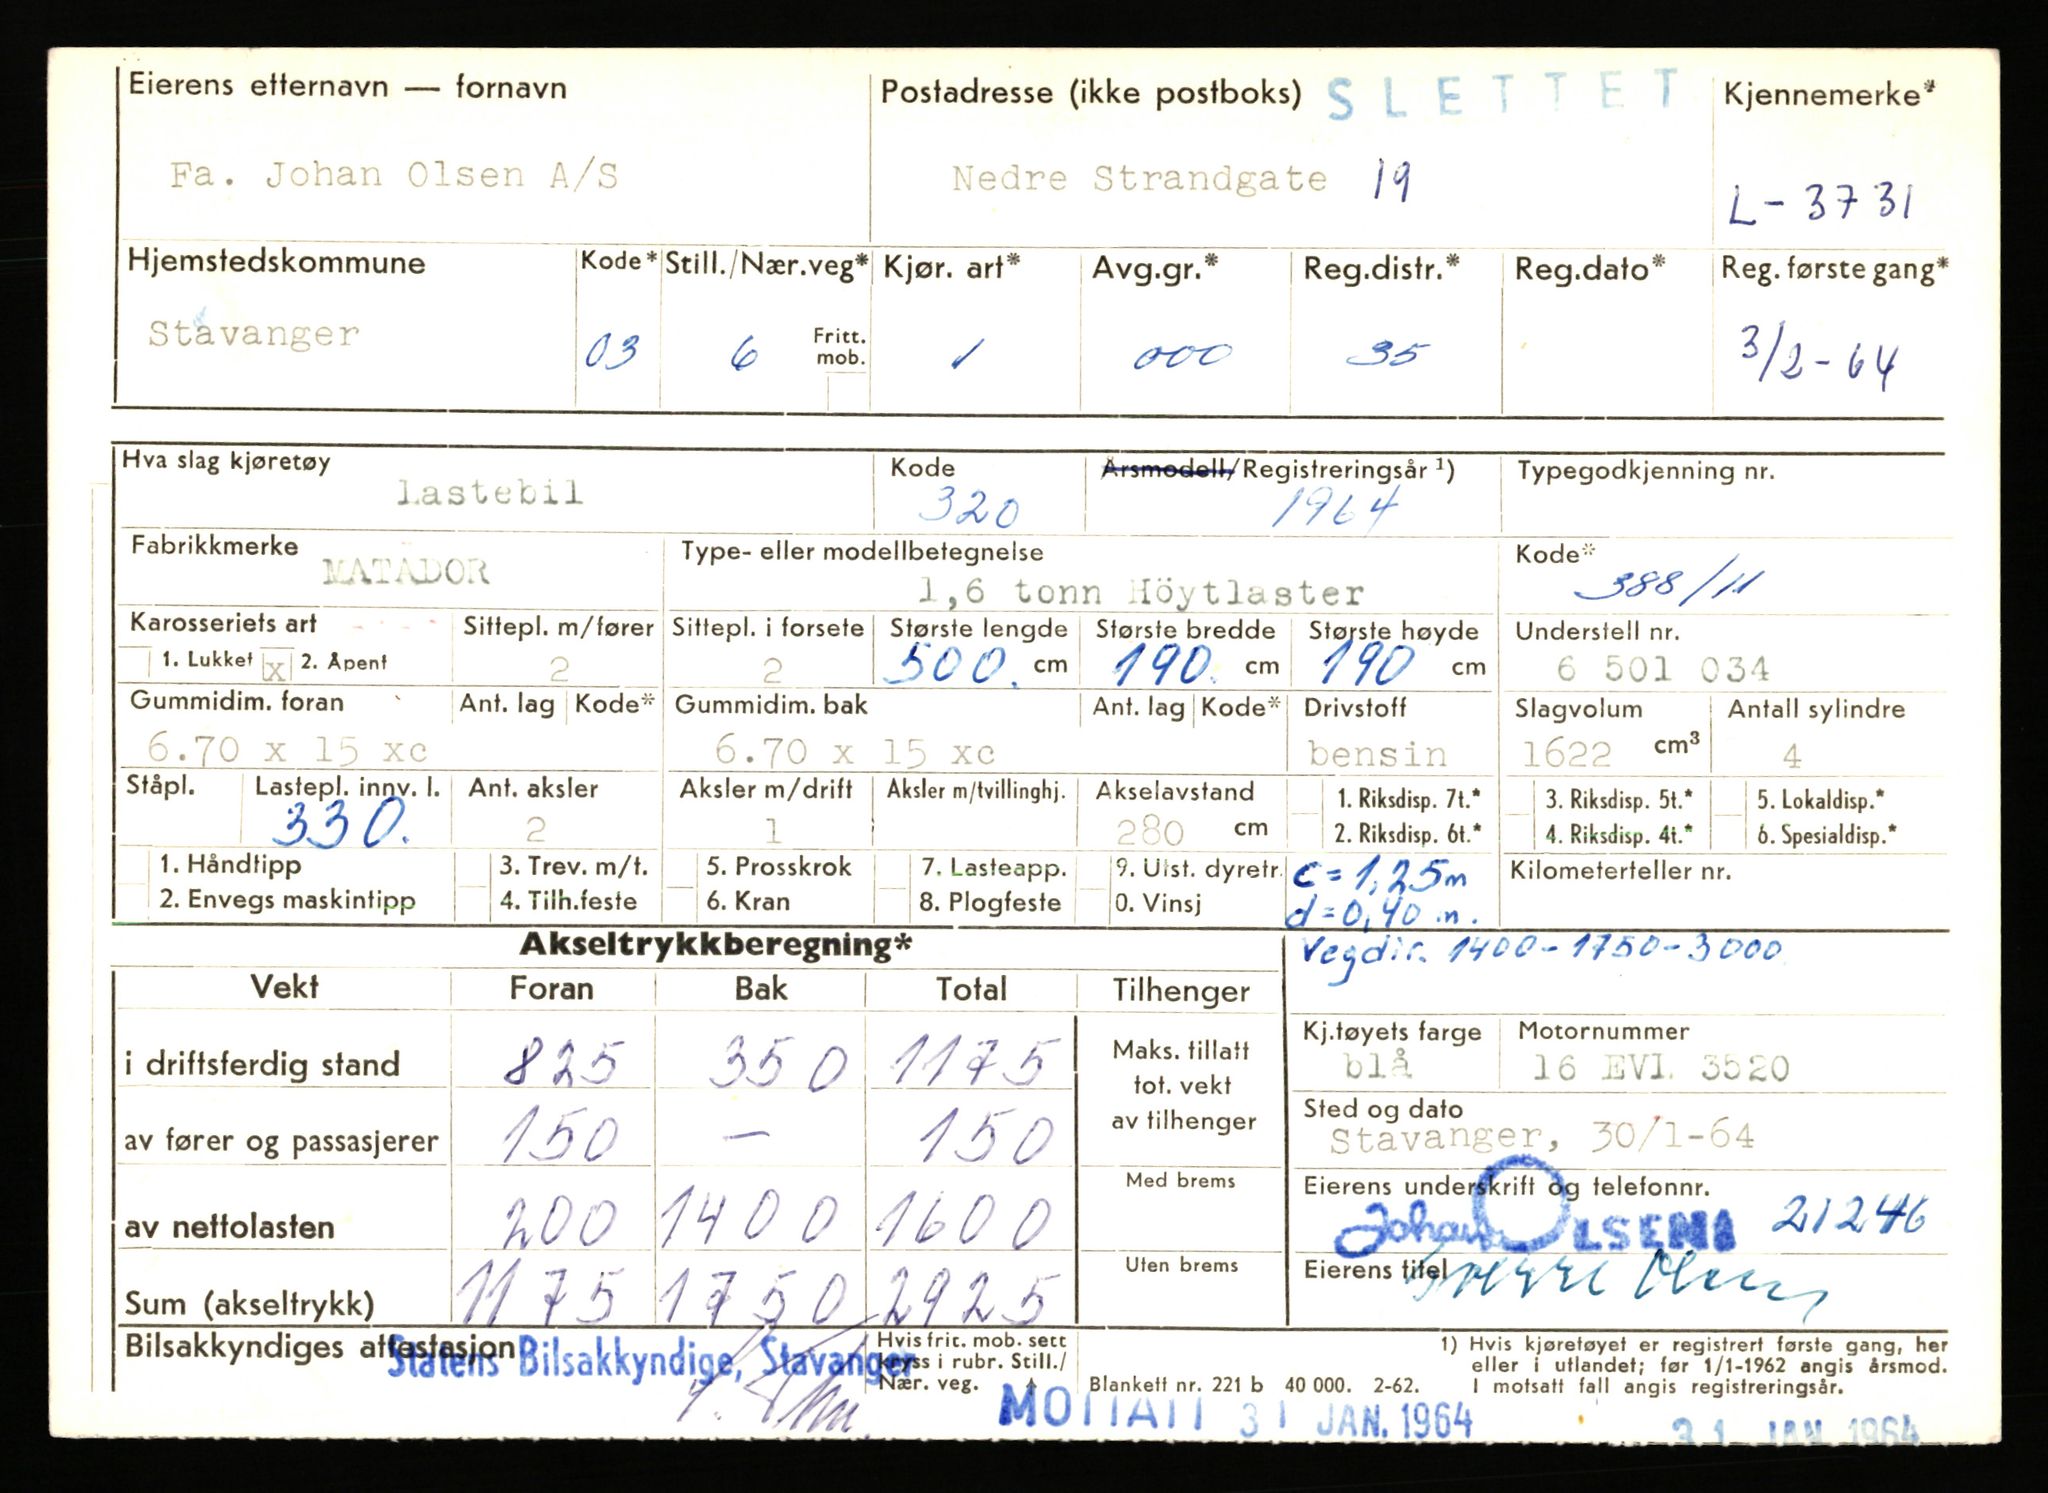 Eierens etternavn — fornavn
Postadresse (ikke postboks) SLETTET
Kjennemerke*
Fa. Johan Olsen A/S
Nedre Strandgate 19
L-3731
Hjemstedskommune Kode* Still./Nær.veg* Kjør. art* Avg.gr.* Reg.distr.* Reg.dato* Reg. første gang*
Stavanger 03 6 Fritt. mob. 1 000 35 3/2-64
Hva slag kjøretøy Kode Årsmodell/Registreringsår ¹) Typegodkjenning nr.
Lastebil 320 1964
Fabrikkmerke Type- eller modellbetegnelse Kode*
MATADOR 1,6 tonn Höytlaster 388/11
Karosseriets art Sittepl. m/fører Sittepl. i forsete Største lengde Største bredde Største høyde Understell nr.
1. Lukket x 2. Åpent 2 2 500. cm 190. cm 190 cm 6 501 034
Gummidim. foran Ant. lag Kode* Gummidim. bak Ant. lag Kode* Drivstoff Slagvolum Antall sylindre
6.70 x 15 xc 6.70 x 15 xc bensin 1622 cm³ 4
Ståpl. Lastepl. innv. l. Ant. aksler Aksler m/drift Aksler m/tvillinghj. Akselavstand 1. Riksdisp. 7t.* 3. Riksdisp. 5t.* 5. Lokaldisp.*
330. 2 1 280 cm 2. Riksdisp. 6t.* 4. Riksdisp. 4t.* 6. Spesialdisp.*
1. Håndtipp 3. Trev. m/t. 5. Prosskrok 7. Lasteapp. 9. Utst. dyretr. c = 1,25 m Kilometerteller nr.
2. Envegs maskintipp 4. Tilh.feste 6. Kran 8. Plogfeste 0. Vinsj d = 0,40 m.
Akseltrykkberegning*
Vegdir. 1400-1750-3000
Vekt Foran Bak Total Tilhenger
Kj.tøyets farge Motornummer
i driftsferdig stand 825 350 1175 Maks. tillatt
blå 16 EVI. 3520
tot. vekt
Sted og dato
av fører og passasjerer 150 — 150 av tilhenger
Stavanger, 30/1-64
Med brems
Eierens underskrift og telefonnr.
av nettolasten 200 1400 1600
Johan OLSEN 21246
Uten brems
Eierens titel
Sum (akseltrykk) 1175 1750 2925
Bilsakkyndiges attestasjon
Statens Bilsakkyndige, Stavanger
Hvis frit. mob. sett
kryss i rubr. Still./
Nær. veg.
Blankett nr. 221 b 40 000. 2-62.
1) Hvis kjøretøyet er registrert første gang, her
eller i utlandet; før 1/1-1962 angis årsmod.
I motsatt fall angis registreringsår.
MOTTATT 31 JAN. 1964
31 JAN 1964